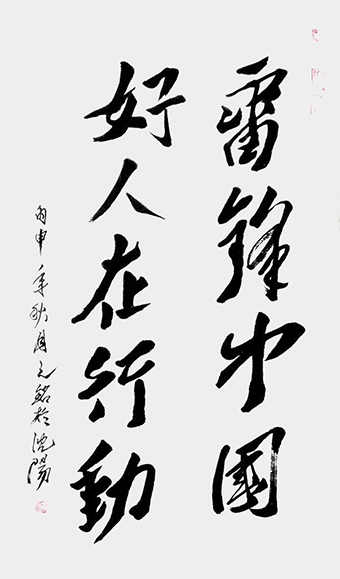 雷锋中國
好人在行動
丙申年秋月元銘於沈陽